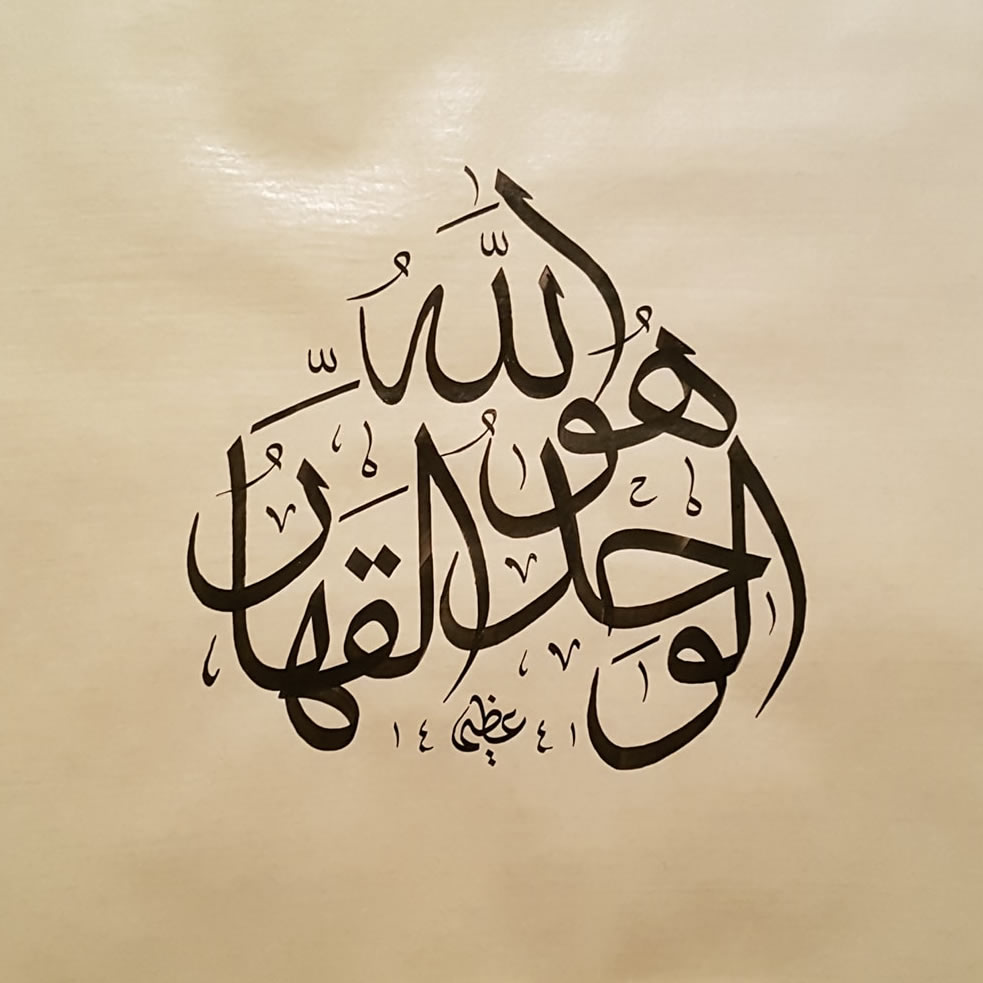 هُوَ اللّٰهُ الْوَاحِدُ الْقَهَّارُ
١٤ عظيم ٤١